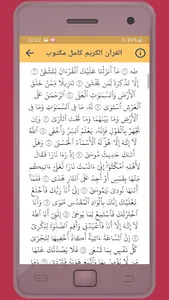 22:02
القرآن الكريم كامل مكتوب
طه ۝ مَآ أَنزَلْنَا عَلَيْكَ ٱلْقُرْءَانَ لِتَشْقَىٰٓ ۝
إِلَّا تَذْكِرَةً لِّمَن يَخْشَىٰ ۝ تَنزِيلًا مِّمَّنْ خَلَقَ
ٱلْأَرْضَ وَٱلسَّمَٰوَٰتِ ٱلْعُلَى ۝ ٱلرَّحْمَٰنُ عَلَى
ٱلْعَرْشِ ٱسْتَوَىٰ ۝ لَهُۥ مَا فِى ٱلسَّمَٰوَٰتِ وَمَا فِى
ٱلْأَرْضِ وَمَا بَيْنَهُمَا وَمَا تَحْتَ ٱلثَّرَىٰ ۝ وَإِن
تَجْهَرْ بِٱلْقَوْلِ فَإِنَّهُۥ يَعْلَمُ ٱلسِّرَّ وَأَخْفَى ۝ ٱللَّهُ
لَآ إِلَٰهَ إِلَّا هُوَ لَهُ ٱلْأَسْمَآءُ ٱلْحُسْنَىٰ ۝ وَهَلْ
أَتَىٰكَ حَدِيثُ مُوسَىٰٓ ۝ إِذْ رَءَا نَارًا فَقَالَ لِأَهْلِهِ
ٱمْكُثُوٓا۟ إِنِّىٓ ءَانَسْتُ نَارًا لَّعَلِّىٓ ءَاتِيكُم مِّنْهَا
بِقَبَسٍ أَوْ أَجِدُ عَلَى ٱلنَّارِ هُدًى ۝ فَلَمَّآ
أَتَىٰهَا نُودِىَ يَٰمُوسَىٰٓ ۝ إِنِّىٓ أَنَا۠ رَبُّكَ فَٱخْلَعْ
نَعْلَيْكَ إِنَّكَ بِٱلْوَادِ ٱلْمُقَدَّسِ طُوًى ۝ وَأَنَا
ٱخْتَرْتُكَ فَٱسْتَمِعْ لِمَا يُوحَىٰٓ ۝ إِنَّنِىٓ أَنَا ٱللَّهُ
لَآ إِلَٰهَ إِلَّآ أَنَا۠ فَٱعْبُدْنِى وَأَقِمِ ٱلصَّلَوٰةَ لِذِكْرِىٓ
۝ إِنَّ ٱلسَّاعَةَ ءَاتِيَةٌ أَكَادُ أُخْفِيهَا لِتُجْزَىٰ